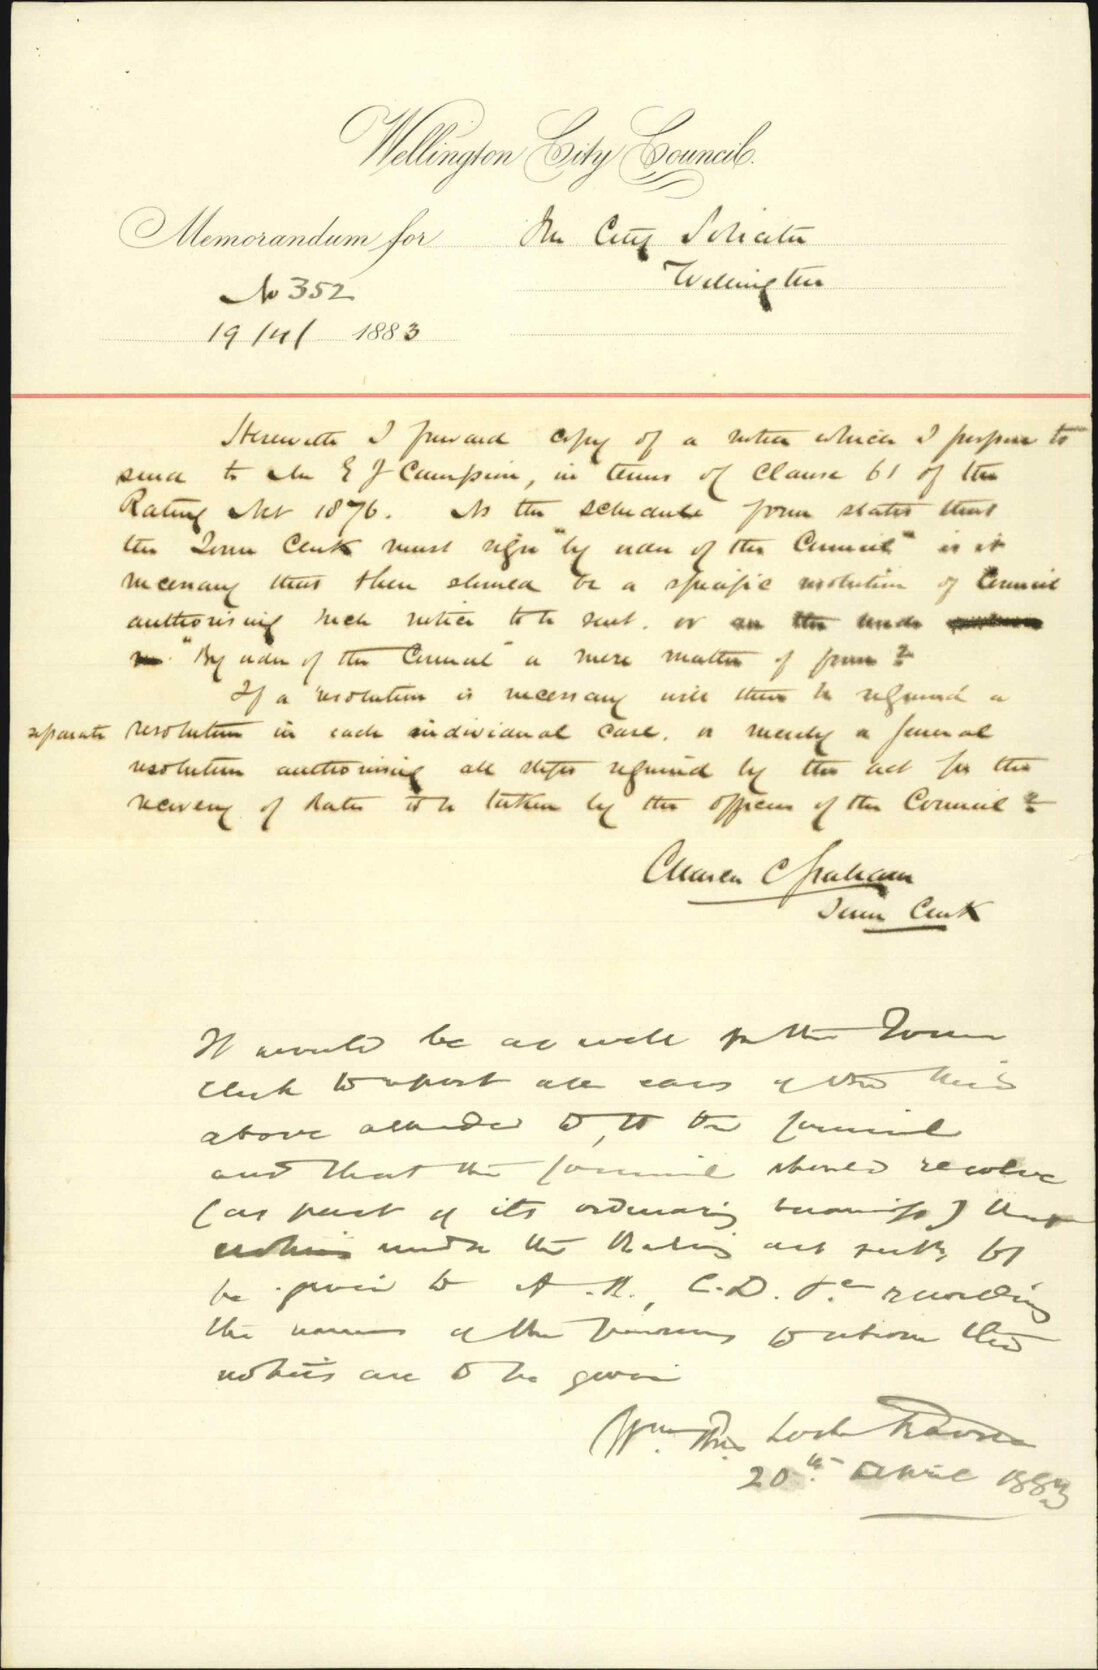 Wellington City Council.
Memorandum for The City Solicitor
Wellington
No 352
19/4/ 1883
Herewith I forward copy of a notice which I propose to
send to Mr E J Campion, in terms of Clause 61 of the
Rating Act 1876. As the schedule form states that
the Town Clerk must sign "by order of the Council" is it
necessary that there should be a specific resolution of Council
authorising such notice to be sent. or are the words
"By order of the Council" a mere matter of form?
If a resolution is necessary will there be required a
separate resolution in each individual case. or merely a general
resolution authorising all steps required by the act for the
recovery of Rates to be taken by the officers of the Council?
Charles C Graham
Town Clerk
It would be as well for the Town
Clerk to report all cases of the kind
above alluded to, to the Council
and that the Council should resolve
(as part of its ordinary business) that
notices under the Rating act sect. 61
be given to A.B., C.D. &c recording
the names of the persons to whom the
notices are to be given
Wm Thos Locke Travers
20th April 1883